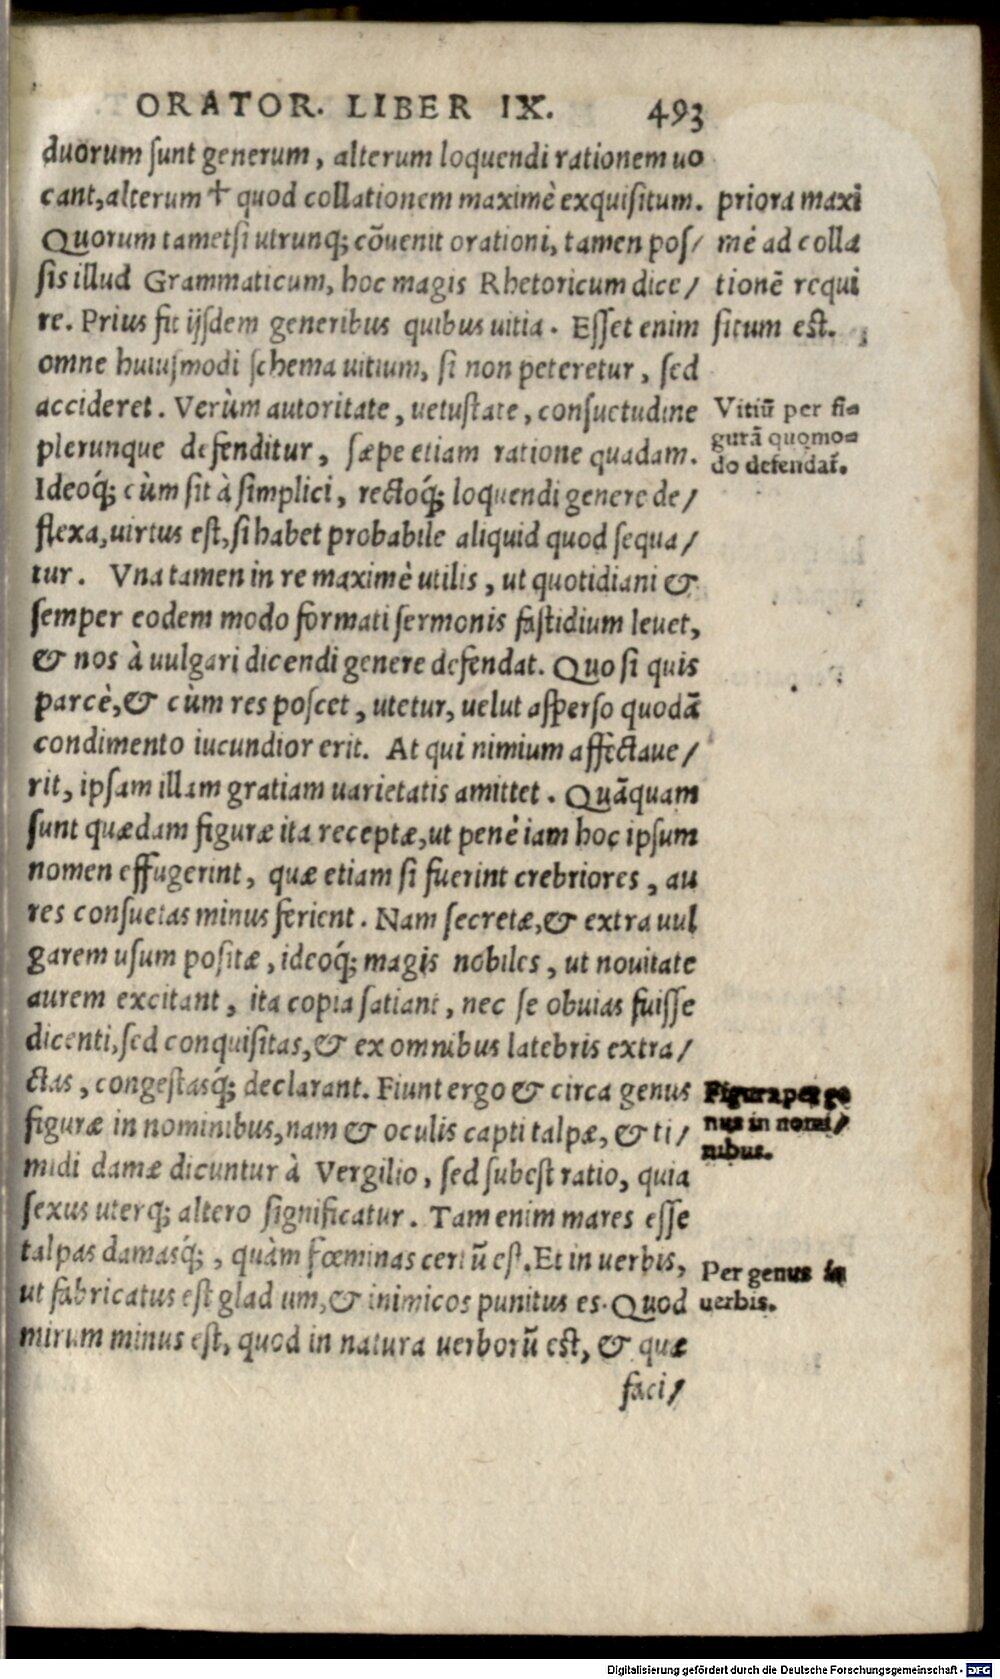 ORATOR. LIBER IX. 493
duorum sunt generum, alterum loquendi rationem uo
cant, alterum † quod collationem maximè exquisitum.
Quorum tametsi utrunq; cōuenit orationi, tamen pos/
sis illud Grammaticum, hoc magis Rhetoricum dice/
re. Prius fit ijsdem generibus quibus uitia. Esset enim
omne huiusmodi schema uitium, si non peteretur, sed
accideret. Verùm autoritate, uetustate, consuetudine
plerunque defenditur, sæpe etiam ratione quadam.
Ideoq́; cùm sit à simplici, rectoq́; loquendi genere de/
flexa, uirtus est, si habet probabile aliquid quod sequa/
tur. Vna tamen in re maximè utilis, ut quotidiani &
semper eodem modo formati sermonis fastidium leuet,
& nos à uulgari dicendi genere defendat. Quo si quis
parcè, & cùm res poscet, utetur, uelut asperso quodā
condimento iucundior erit. At qui nimium affectaue/
rit, ipsam illam gratiam uarietatis amittet. Quāquam
sunt quædam figuræ ita receptæ, ut penè iam hoc ipsum
nomen effugerint, quæ etiam si fuerint crebriores, au
res consuetas minus ferient. Nam secretæ, & extra uul
garem usum positæ, ideoq́; magis nobiles, ut nouitate
aurem excitant, ita copia satiant, nec se obuias fuisse
dicenti, sed conquisitas, & ex omnibus latebris extra/
ctas, congestasq́; declarant. Fiunt ergo & circa genus
figuræ in nominibus, nam & oculis capti talpæ, & ti/
midi damæ dicuntur à Vergilio, sed subest ratio, quia
sexus uterq; altero significatur. Tam enim mares esse
talpas damasq́;, quàm fœminas certū est. Et in uerbis,
ut fabricatus est gladium, & inimicos punitus es. Quod
mirum minus est, quod in natura uerborū est, & quæ
faci/
priora maxi
mè ad colla
tionē requi
situm est.
Vitiū per fi=
gurā quomo=
do defendat̃.
Figura per ge
nus in nomi/
nibus.
Per genus in
uerbis.
Digitalisierung gefördert durch die Deutsche Forschungsgemeinschaft - DFG